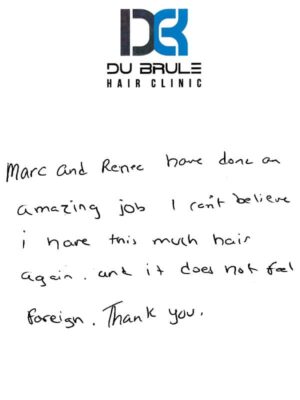 DU BRULE
HAIR CLINIC
Marc and Renee have done an
amazing job I can't believe
i have this much hair
again. and it does not feel
foreign. Thank you.